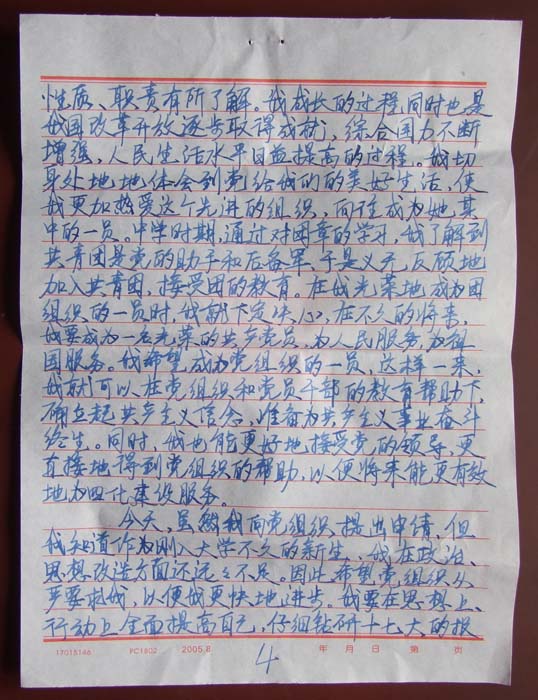 性质、职责有所了解。我成长的过程,同时也是
我国改革开放逐步取得成就,综合国力不断
增强,人民生活水平日益提高的过程。我切
身处地地体会到党给我们的美好生活,使
我更加热爱这个先进的组织,向往成为她其
中的一员。中学时期,通过对团章的学习,我了解到
共青团是党的助手和后备军,于是义无反顾地
加入共青团,接受团的教育。在我光荣地成为团
组织的一员时,我就下定决心,在不久的将来,
我要成为一名光荣的共产党员,为人民服务,为祖
国服务。我希望成为党组织的一员,这样一来,
我就可以在党组织和党员干部的教育帮助下,
确立起共产主义信念,准备为共产主义事业奋斗
终生。同时,我也能更好地接受党的领导,更
直接地得到党组织的帮助,以便将来能更有效
地为四化建设服务。
今天,虽然我向党组织提出申请,但
我知道作为刚入大学不久的新生,我在政治、
思想改造方面还远远不足。因此,希望党组织从
严要求我,以便我更快地进步。我要在思想上、
行动上全面提高自己,仔细钻研十七大的报
17015146 PC1802 2005.8 年 月 日 第 页
4